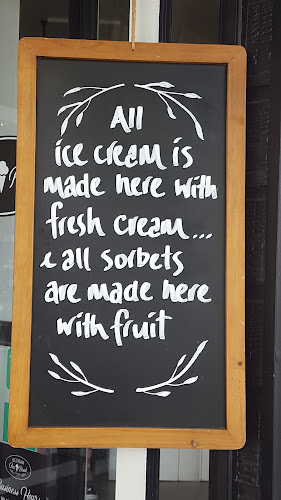 All
ice cream is
made here with
fresh cream...
& all sorbets
are made here
with fruit
Business Hours